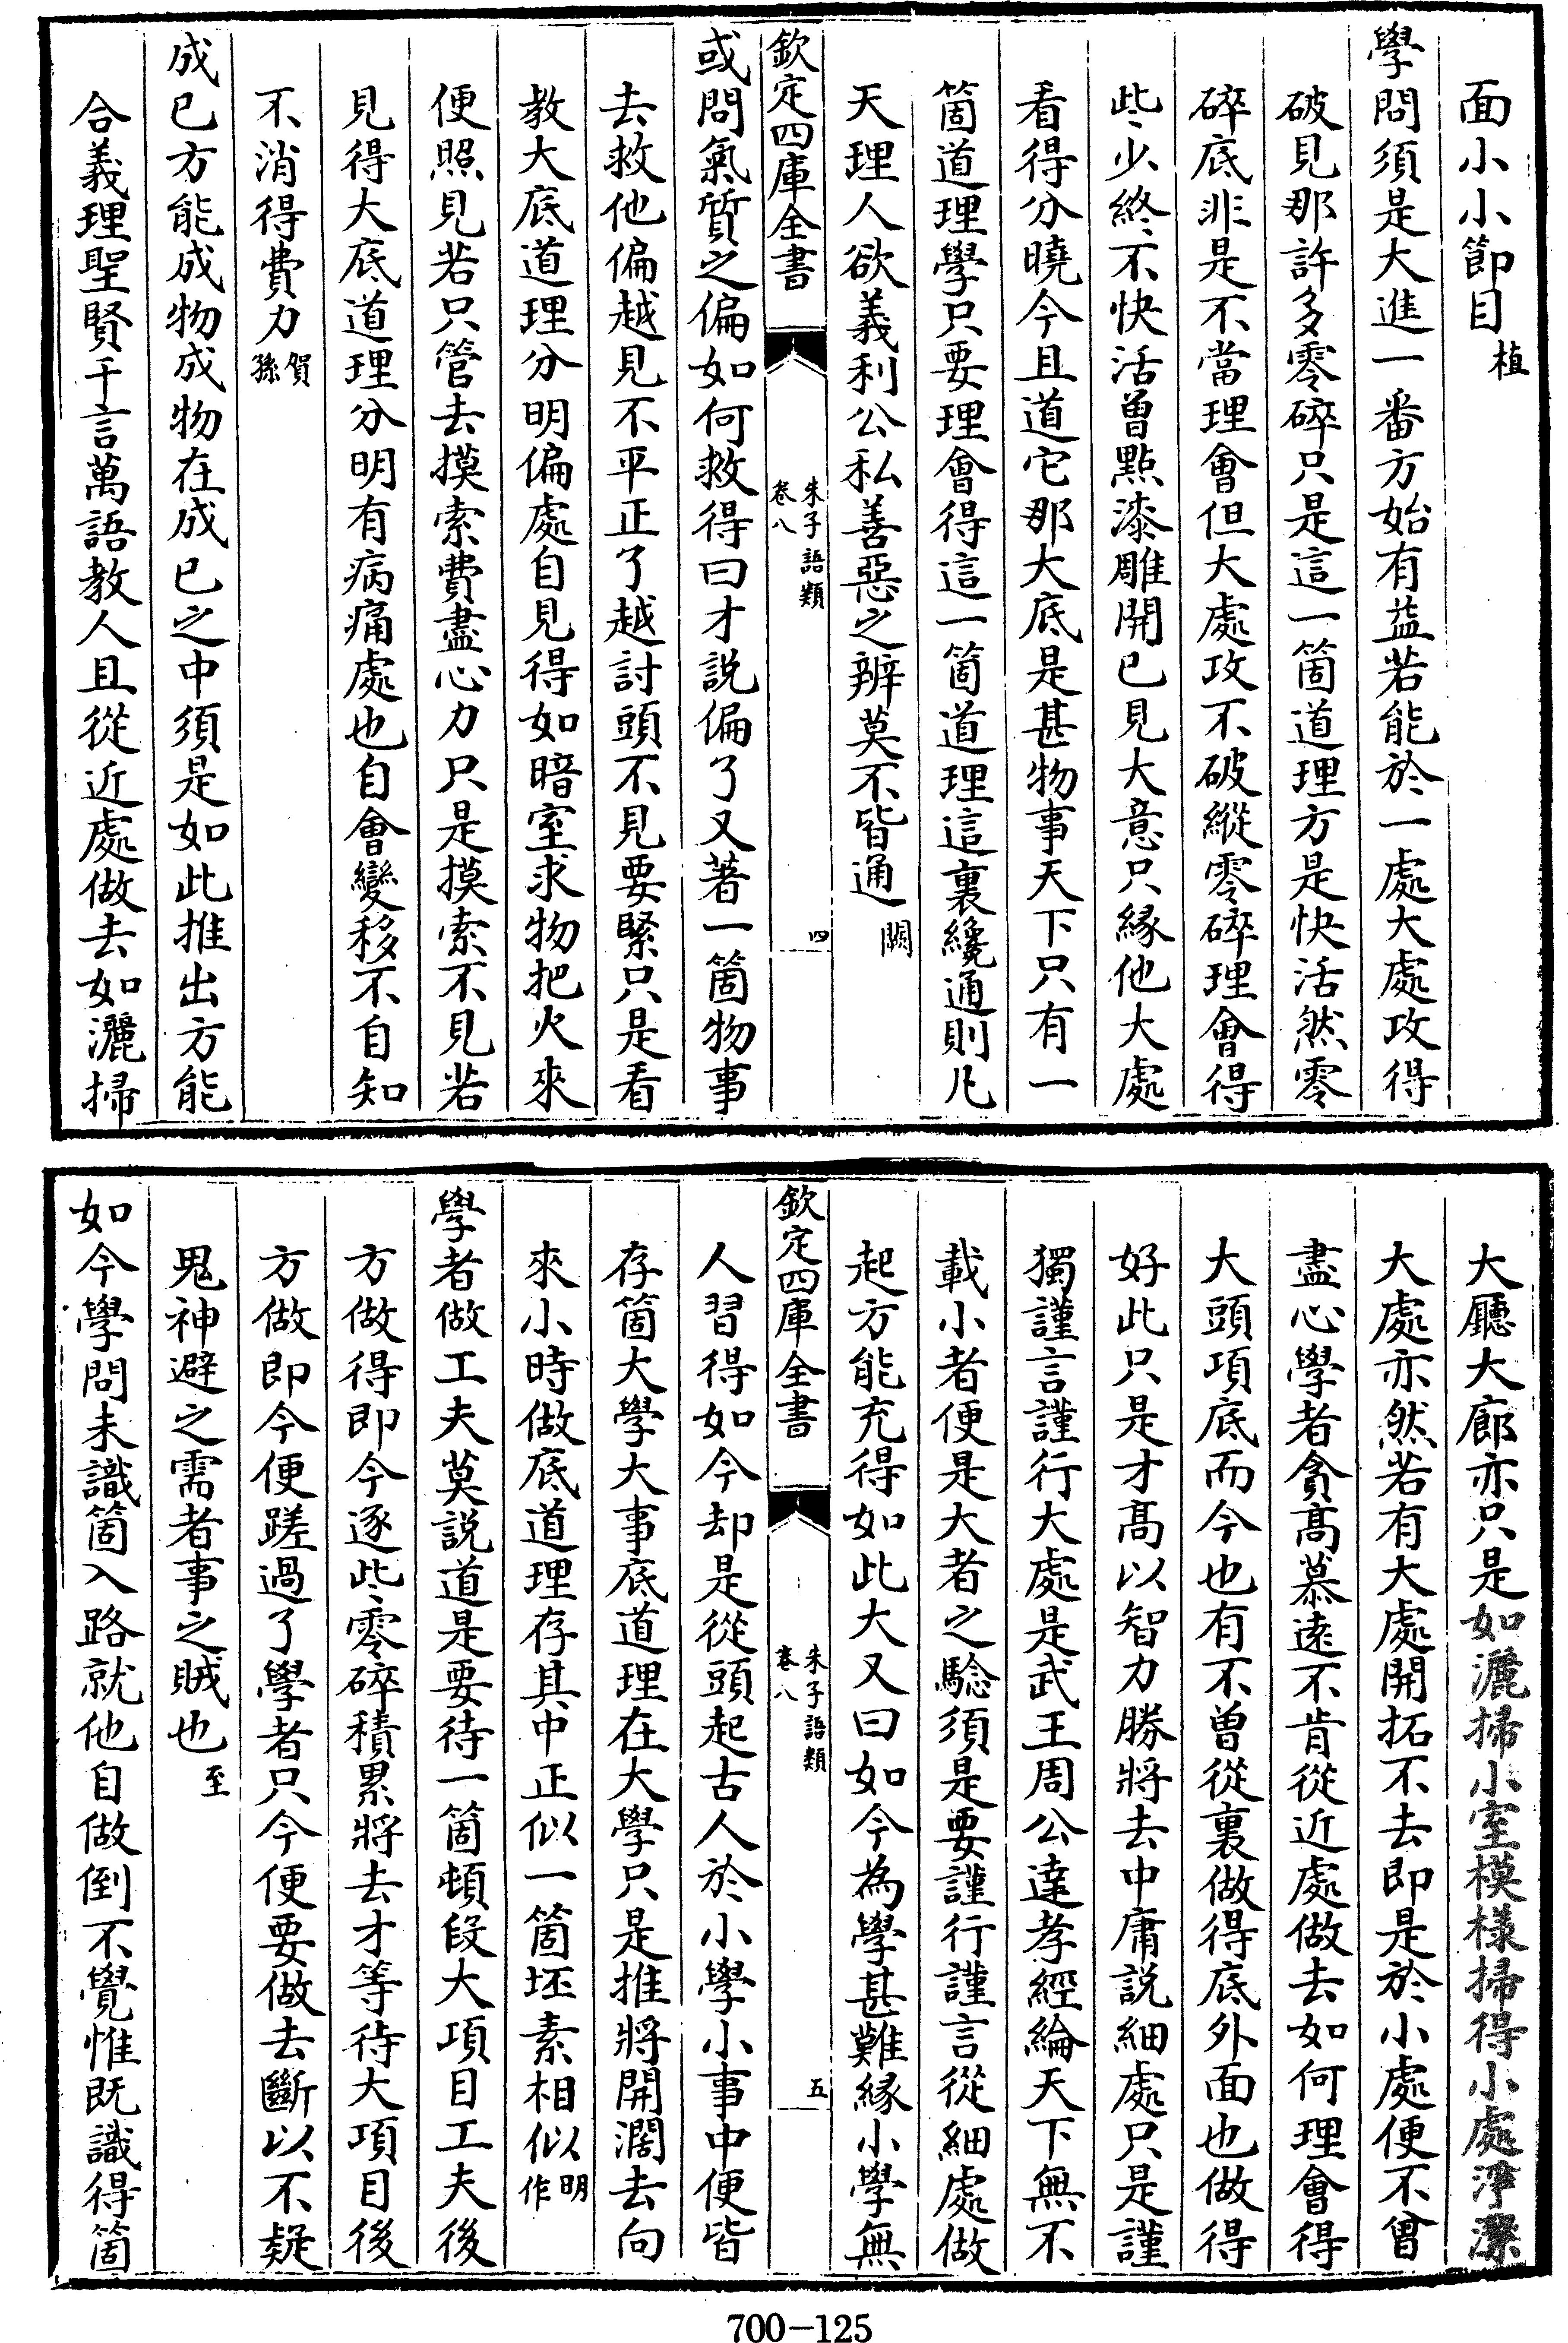 面小小節目植
學問須是大進一番方始有益若能於一處大處攻得
破見那許多零碎只是這一箇道理方是快活然零
碎底非是不當理會但大處攻不破縱零碎理會得
些少終不快活曾點漆雕開已見大意只緣他大處
看得分曉今且道它那大底是甚物事天下只有一
箇道理學只要理會得這一箇道理這裏纔通則凡
天理人欲義利公私善惡之辨莫不皆通 闕
欽定四庫全書 朱子語類 卷八 四
或問氣質之偏如何救得曰才説偏了又著一箇物事
去救他偏越見不平正了越討頭不見要緊只是看
教大底道理分明偏處自見得如暗室求物把火來
便照見若只管去摸索費盡心力只是摸索不見若
見得大底道理分明有病痛處也自會變移不自知
不消得費力賀孫
成已方能成物成物在成已之中須是如此推出方能
合義理聖賢千言萬語教人且從近處做去如灑掃
大廳大廊亦只是如灑掃小室模樣掃得小處淨潔
大處亦然若有大處開拓不去即是於小處便不曾
盡心學者貪高慕遠不肯從近處做去如何理會得
大頭項底而今也有不曾從裏做得底外面也做得
好此只是才高以智力勝將去中庸説細處只是謹
獨謹言謹行大處是武王周公達孝經綸天下無不
載小者便是大者之騐須是要謹行謹言從細處做
起方能充得如此大又曰如今為學甚難緣小學無
欽定四庫全書 朱子語類 卷八 五
人習得如今却是從頭起古人於小學小事中便皆
存箇大學大事底道理在大學只是推將開濶去向
來小時做底道理存其中正似一箇坯素相似明作
學者做工夫莫説道是要待一箇頓段大項目工夫後
方做得即今逐些零碎積累將去才等待大項目後
方做即今便蹉過了學者只今便要做去斷以不疑
鬼神避之需者事之賊也至
如今學問未識箇入路就他自做倒不覺惟既識得箇
700-125